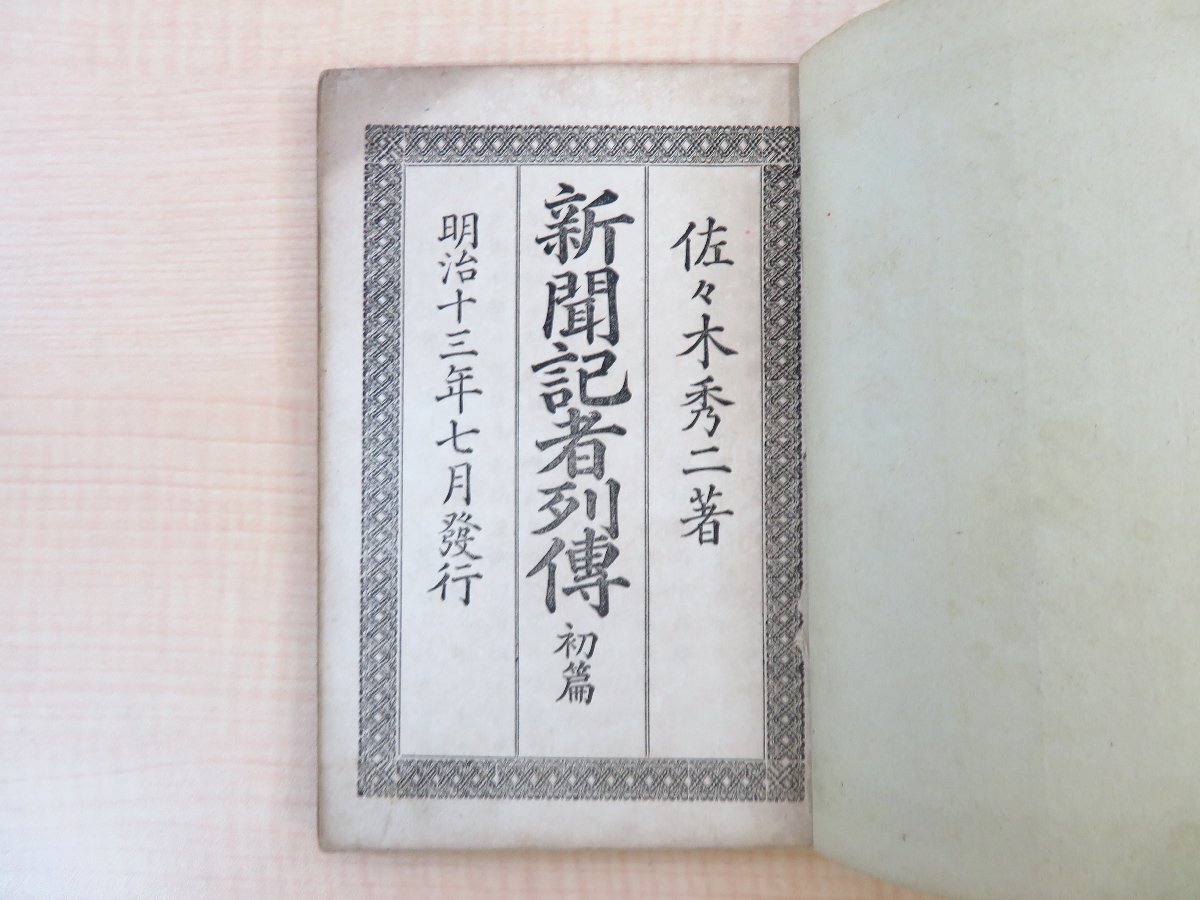 佐々木秀二著
新聞記者列傳 初篇
明治十三年七月發行